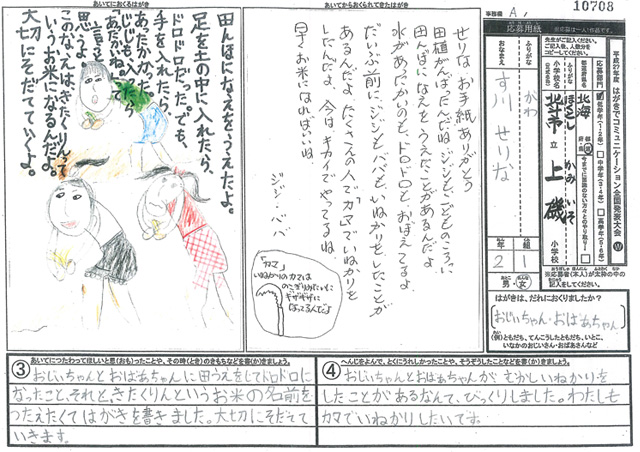 あいてにおくるはがき
田んぼになえをうえたよ。
足を土の中に入れたら、
ドロドロだった。でも、
手を入れたら、
あたたかかった。
じいじも入ったら
「あたたかいね。」って
言うと
思うよ。
このなえはきたくりんって
いうお米になるんだよ。
大切にそだてていくよ。
あいてからおくられてきたはがき
せりな お手紙ありがとう
田植がんばったんだね。ジジもこどものころに
田んぼになえをうえたことがあるんだよ。
水があたたかいのも、ドロドロも、おぼえてるよ。
だいぶ前に、ジジとババも、いねかりをしたことが
あるんだよ。たくさんの人で、カマでいねかりを
したんだよ。今は、キカイでやってるね。
早くお米になればいいね。
ジジ・ババ
「カマ」
いねかりのカマは
のこぎりみたいに
ギザギザに
なってるんだよ
事務欄 A
10708
応募用紙
平成27年度 はがきでコミュニケーション全国発表大会
先生がご記入ください。
ご記入後、人数分を
コピーしてください。
応募部門
低学年(1・2年)
中学年(3・4年)
高学年(5・6年)
都道府県名
北海
道
ふりがな
小学校名
ほくとし かみいそ
北斗市 立 上磯 小学校
ふりがな
おなまえ
かわ
す川 せりな
2年
1組
男・女
※応募者(本人)が太枠の中の
記入をしてください。
はがきは、だれにおくりましたか?
おじいちゃん・おばあちゃん
(例)ともだち、てんこうしたともだち、いとこ、
いなかのおじいさん・おばあさんなど
③ あいてにつたわってほしいと思(おも)ったことや、その時(とき)のきもちなどを書(か)きましょう。
おじいちゃんとおばあちゃんに田うえをしてドロドロに
なったこと、それときたくりんというお米の名前を
つたえたくてはがきを書きました。大切にそだてて
いきます。
④ へんじをよんで、とくにうれしかったことや、そうぞうしたことなどを書(か)きましょう。
おじいちゃんとおばあちゃんがむかしいねかりを
したことがあるなんて、びっくりしました。わたしも
カマでいねかりしたいです。